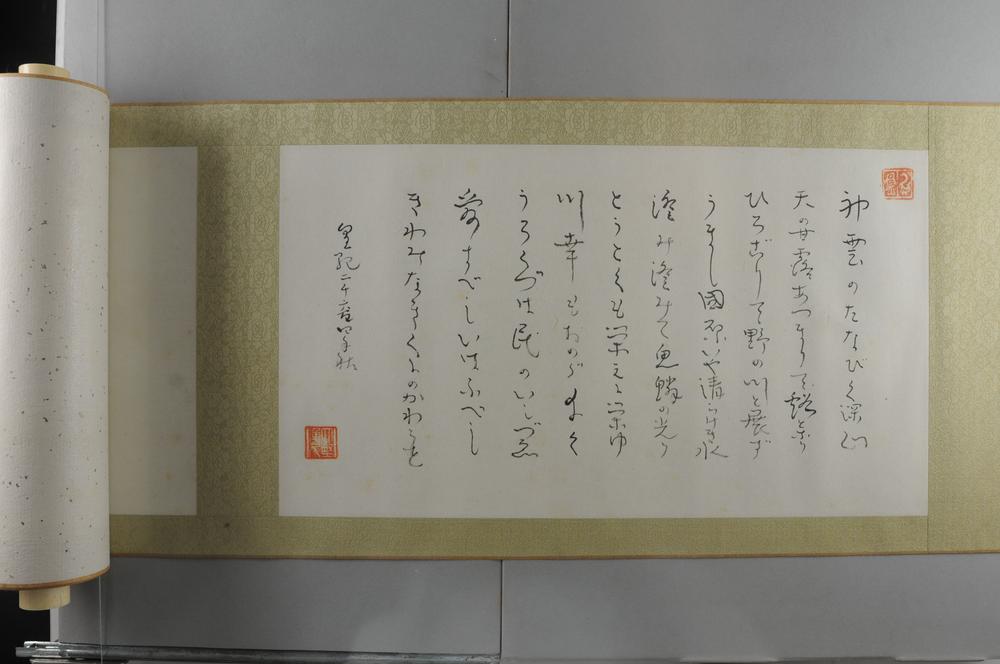 神雲のたなびく深山
天の甘露あつまりて谿となり
ひろごりて野の川と展ず
うまし國原いや清らけき水
澄み澄みて魚鱗の光り
とうとくも栄えに栄ゆ
川幸もおのがまく
うろくづは民のいしづゑ
愛すべしいはふべし
きわみなきくにのかわさを
皇紀二千六百
秋